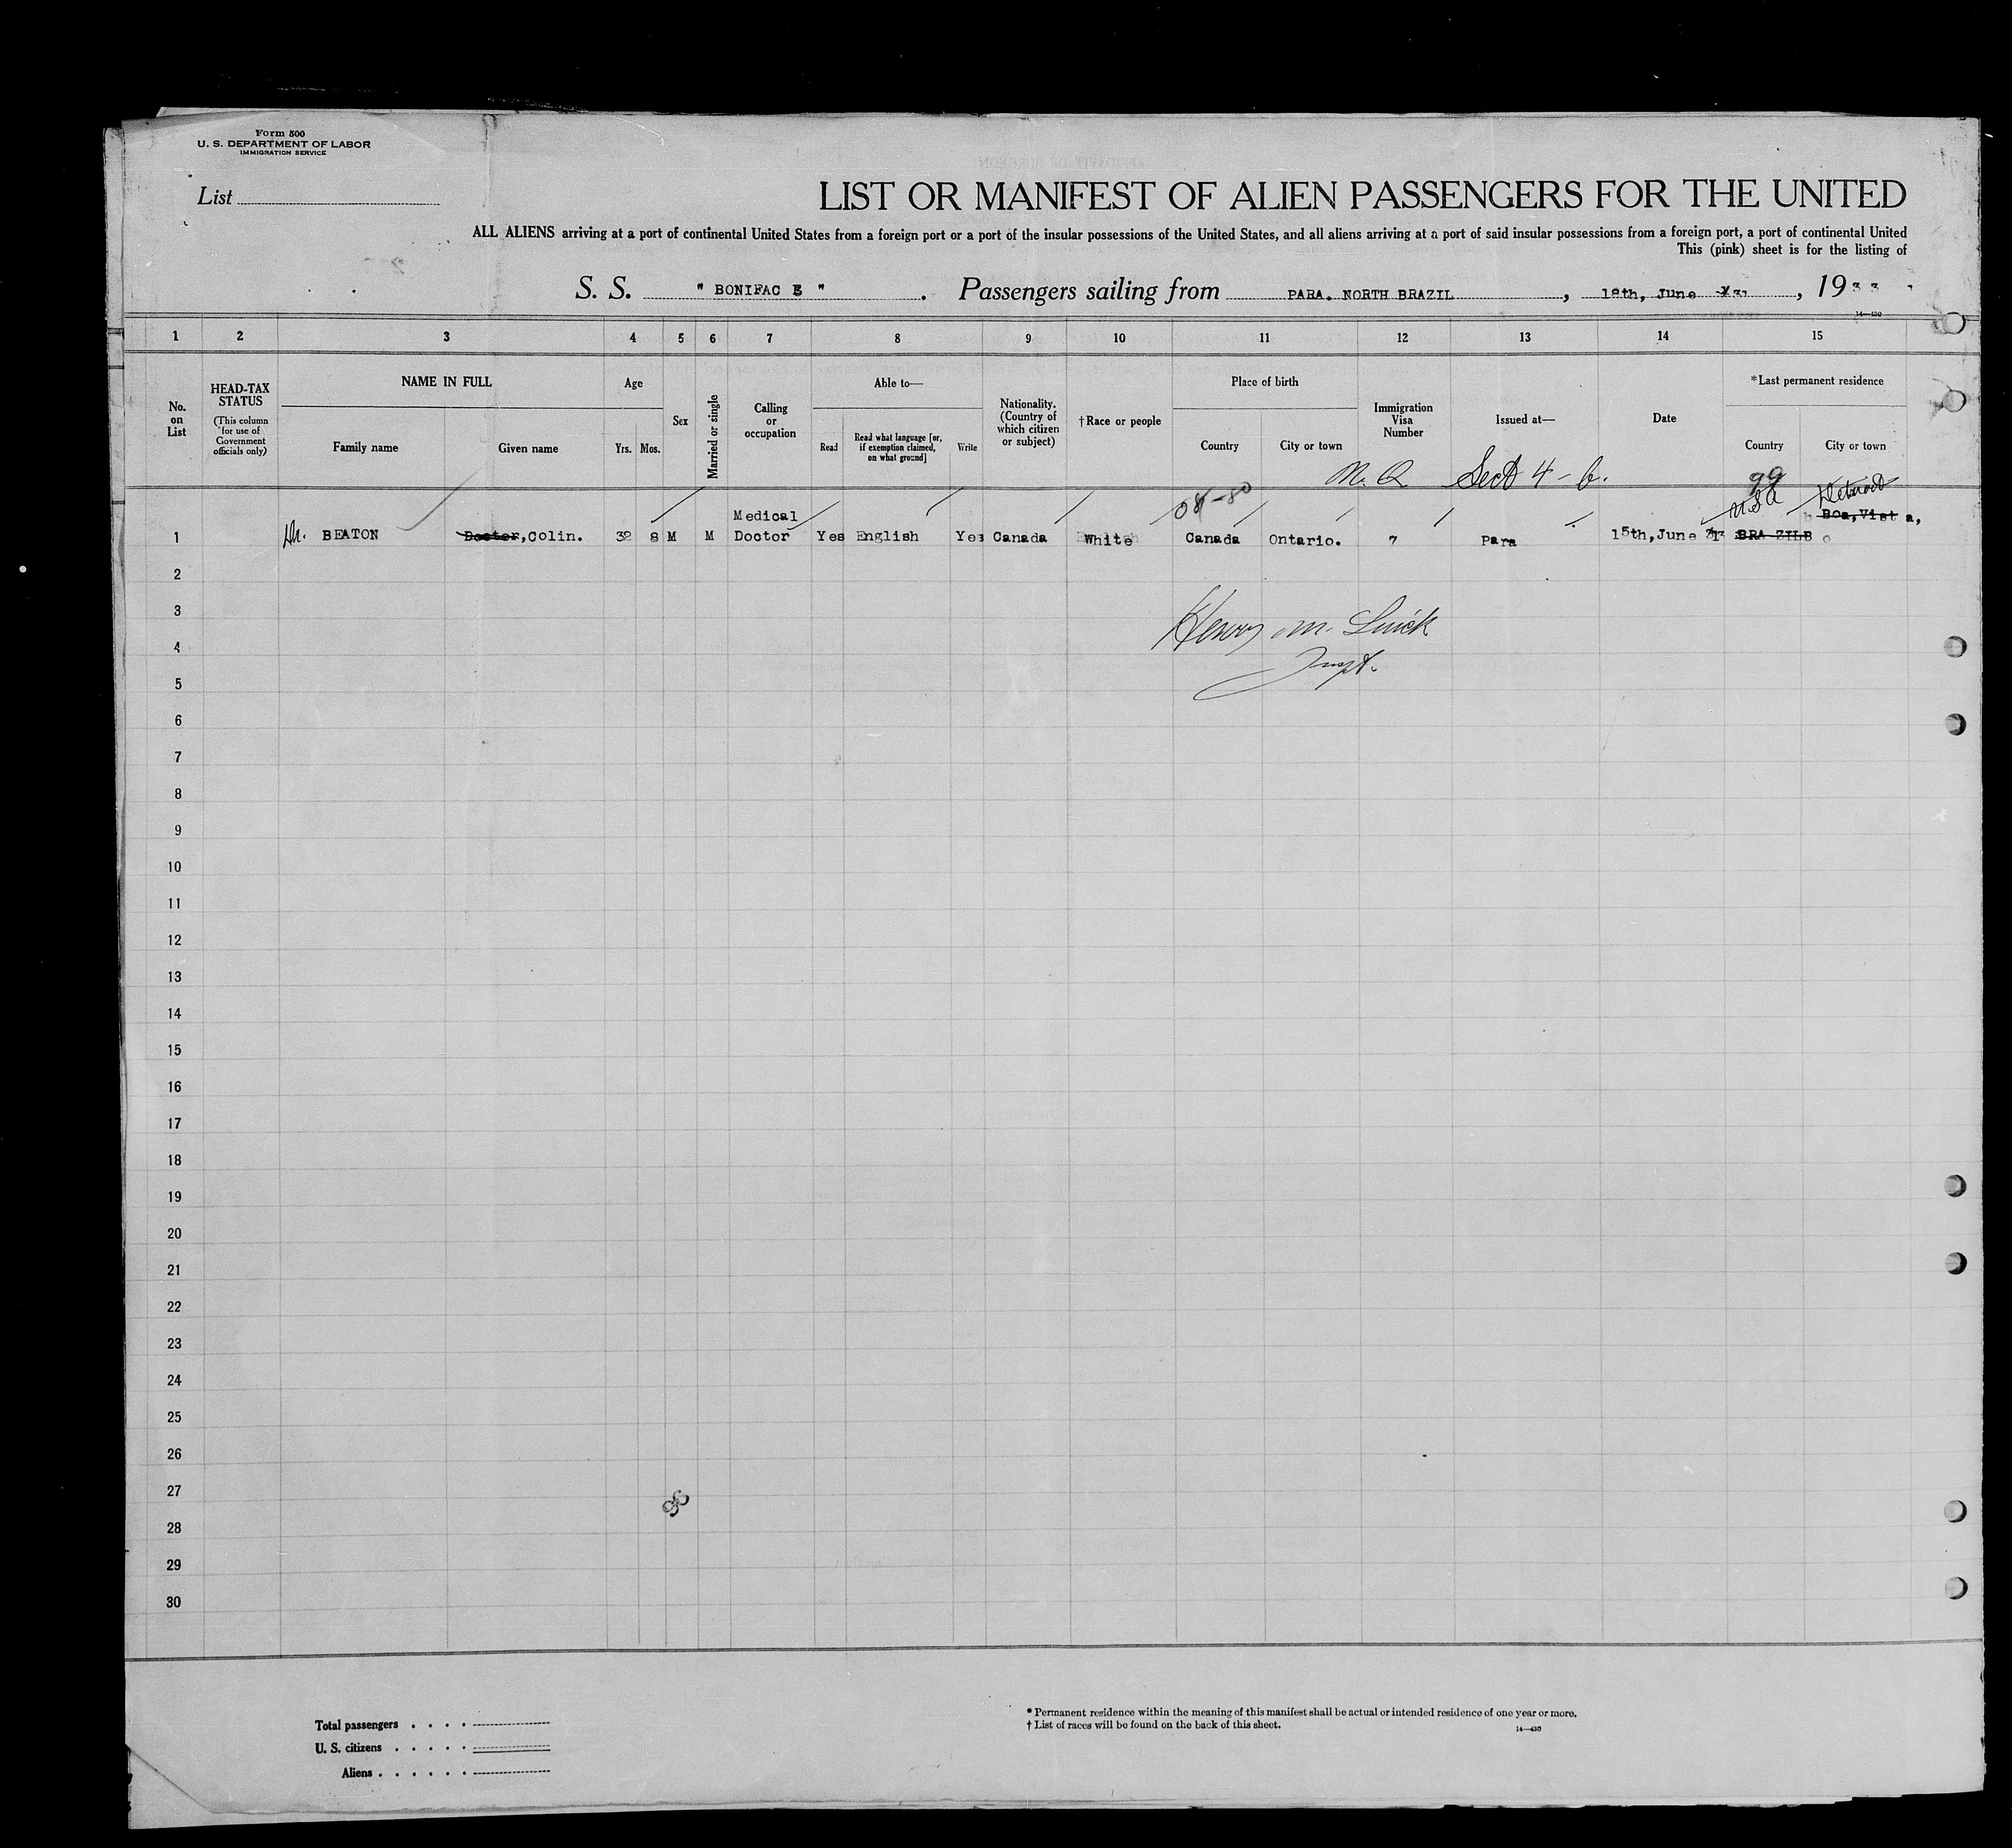 Form 500
U. S. DEPARTMENT OF LABOR
IMMIGRATION SERVICE
List
LIST OR MANIFEST OF ALIEN PASSENGERS FOR THE UNITED
ALL ALIENS arriving at a port of continental United States from a foreign port or a port of the insular possessions of the United States, and all aliens arriving at a port of said insular possessions from a foreign port, a port of continental United
This (pink) sheet is for the listing of
S. S. " BONIFAC E " . Passengers sailing from PARA. NORTH BRAZIL , 18th, June , 1933
14—430
1 2 3 4 5 6 7 8 9 10 11 12 13 14 15
No. on List
HEAD-TAX STATUS
(This column for use of Government officials only)
NAME IN FULL
Family name
Given name
Age
Yrs. Mos.
Sex
Married or single
Calling or occupation
Able to—
Read
Read what language [or, if exemption claimed, on what ground]
Write
Nationality. (Country of which citizen or subject)
† Race or people
Place of birth
Country
City or town
Immigration Visa Number
Issued at—
Date
*Last permanent residence
Country
City or town
Sect 4-b.
99
08-80
USA
Detroit
1 Dr. BEATON Doctor,Colin. 32 8 M M Medical Doctor Yes English Yes Canada White Canada Ontario. 7 Para 15th,June BRA ZIL Boa,Vist a,
2
3
Henry M.
4
Inspt.
5
6
7
8
9
10
11
12
13
14
15
16
17
18
19
20
21
22
23
24
25
26
27
28
29
30
Total passengers
U. S. citizens
Aliens
* Permanent residence within the meaning of this manifest shall be actual or intended residence of one year or more.
† List of races will be found on the back of this sheet.
14—430